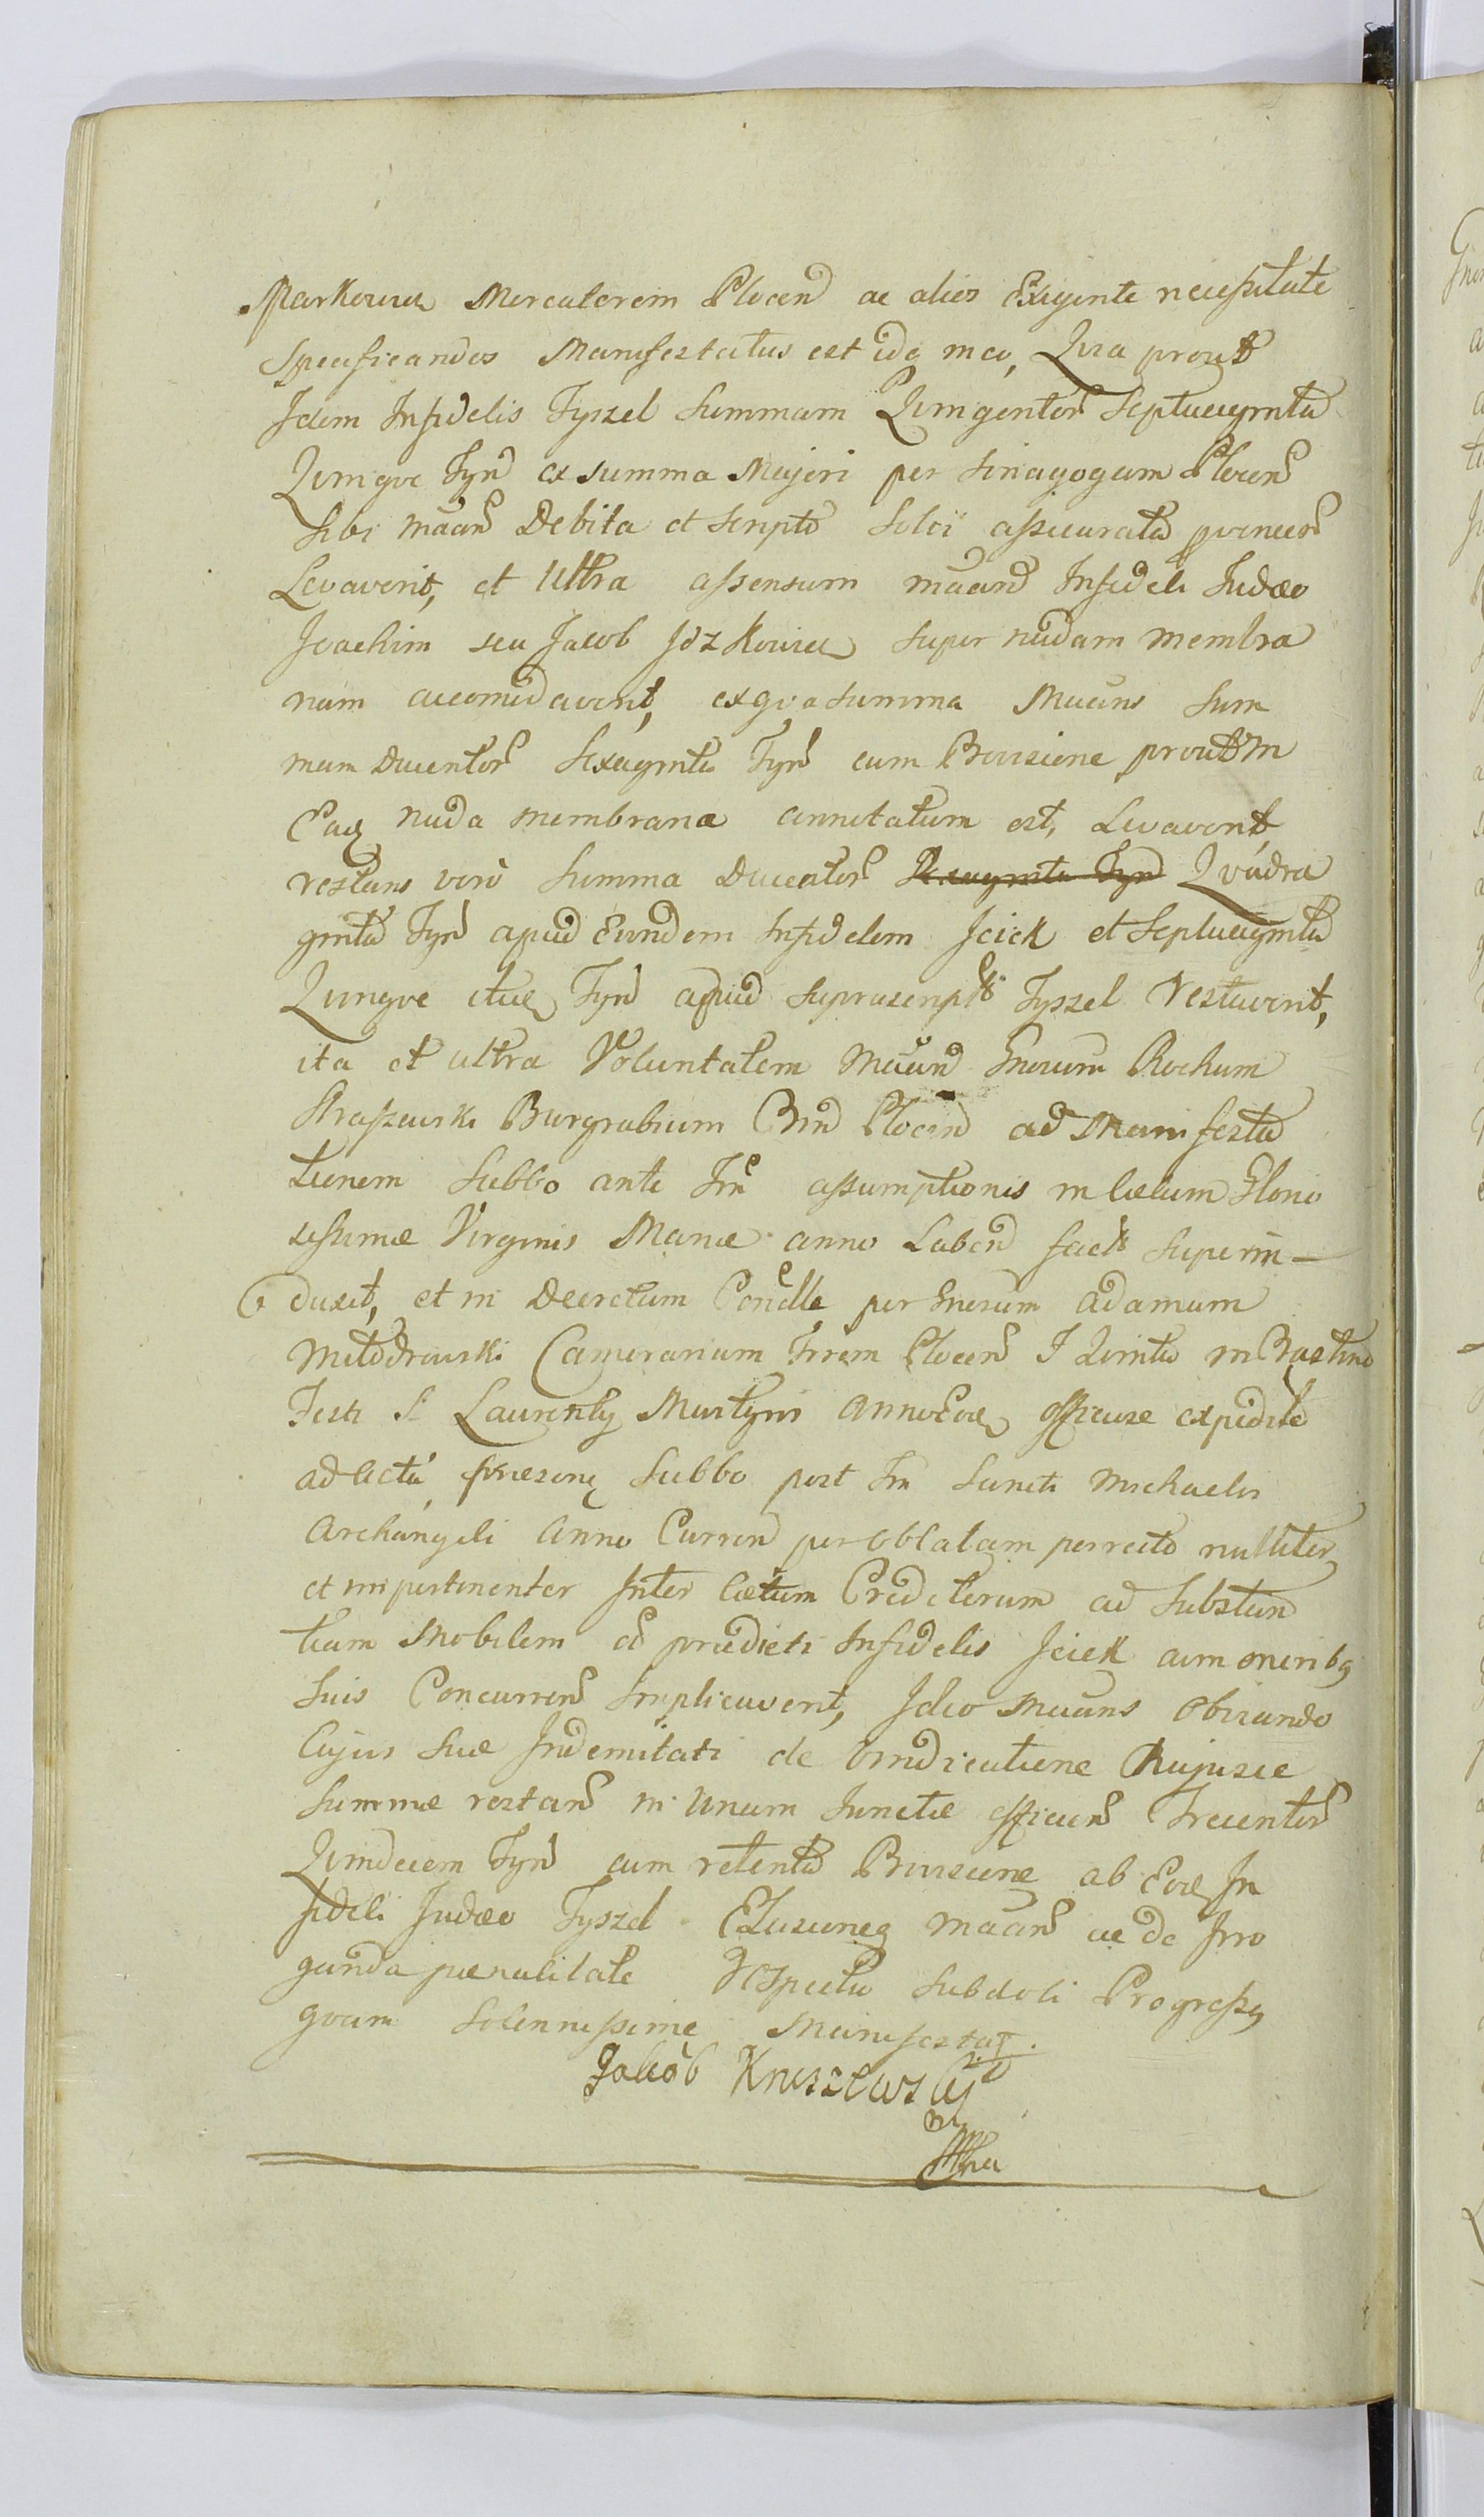 Markowicz Mercatorem Plocen ac alios Exigente necessitate
Specificandos Manifestatus est idq in eo, Quia prout
Idem Infidelis Fyszel Summam Quingentor Septuaginta
Quinque Fyn ex summa Majori per Sinagogam Plocen
Sibi Maan Debita et Scripto Soloi assecurata provenien
Levaverit, et Ultra assensum maand Infideli Judæo
Joachim seu Jacob Jozkowicz super nudam membra
nam accomodaverit, ex qva summa Maans Sum
mam Ducentor Sexaginta Fyn cum Provisione prout in
Eaq nuda membrana annotatum est, Levaverit,
restans vero Summa Ducentor Sexaginta Fyn Qvadra
ginta Fyn apud Eundem Infidelem Icick et Septuaginta
Quinque itaq Fyn apud suprascript Fyszel restaverit,
ita et ultra Voluntatem Maand Gnosum Rochum
Straszewski Burgrabium Crn Plocen ad Manifesta
tionem Sabbo ante Fm assumptionis in Cælum Glorio
sissimæ Virginis Mariæ anno Laben fact superin-
duxit, et in Decretum Condle per Gnosum Adamum
Młodzrowski Camerarium Trrem Plocen F Quinta in Crastino
Festi S Laurenty Martyris Anno Eoq officiose expedite
ad acta præsenq Sabbo post Fm Sancti Michaelis
Archangeli Anno Curren per Oblatam porrecto nulliter
et impertinenter Inter Cætum Creditorum ad Substan
tiam Mobilem præedicti Infidelis Icick cum oneribq
Suis Concurren Implicaverit, Ideo Maans Obviando
Cujus Suæ Indemnitati de Vindicatione Hujusce
Summæ restan in Unum Junctæ efficien Trecentor
Quindecem Fyn cum retenta Provisione ab Eoq In
fideli Judæo Fyszel Elusioneq Maan ac de Irro
ganda pænalitate respectu Subdoli Progressq
quam Solennissime Manifestat.
Jakób Kruszewski